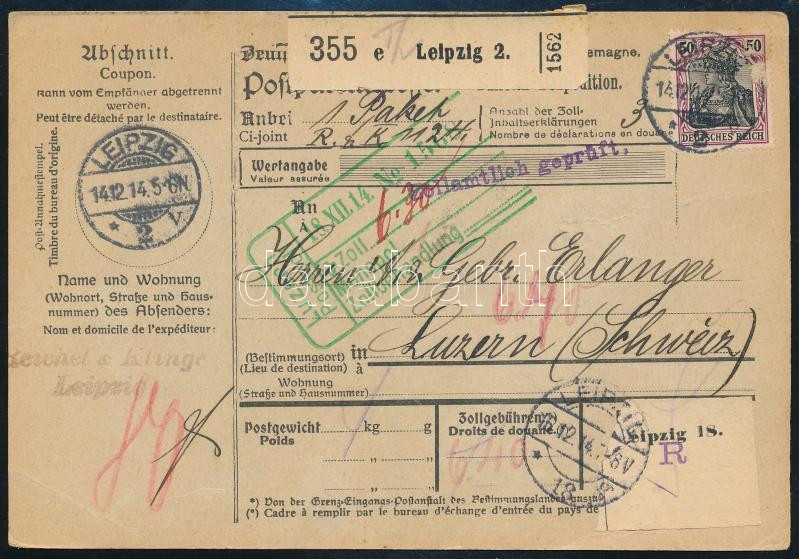 Abschnitt.
Coupon.
Kann vom Empfänger abgetrennt
werden.
Peut être détaché par le destinataire.
Post-Annahmestempel.
Timbre du bureau d'origine.
LEIPZIG
14.12.14.5-6N
* 2 V.
Name und Wohnung
(Wohnort, Straße und Haus-
nummer) des Absenders:
Nom et domicile de l'expéditeur:
& Klinge
Leipzig
355 e Leipzig 2.
1562
50 50
DEUTSCHES REICH
1 Paket
Ci-joint R. & K 1124
Anzahl der Zoll-
Inhaltserklärungen
Nombre de déclarations en doua
3
Wertangabe
Valeur assurée
Zollamtlich geprüft.
18.XII.14. No
Zoll
An
À
6.30
Herren Gebr. Erlanger
(Bestimmungsort) in
(Lieu de destination) à
Luzern (Schweiz)
Wohnung
(Straße und Hausnummer)
Postgewicht kg g
Poids
Zollgebühren
Droits de douane
LEIPZIG
18
Leipzig 18.
R
*) Von der Grenz-Eingangs-Postanstalt des Bestimmungslandes auszu
(*) Cadre à remplir par le bureau d'échange d'entrée du pays de
darabanth